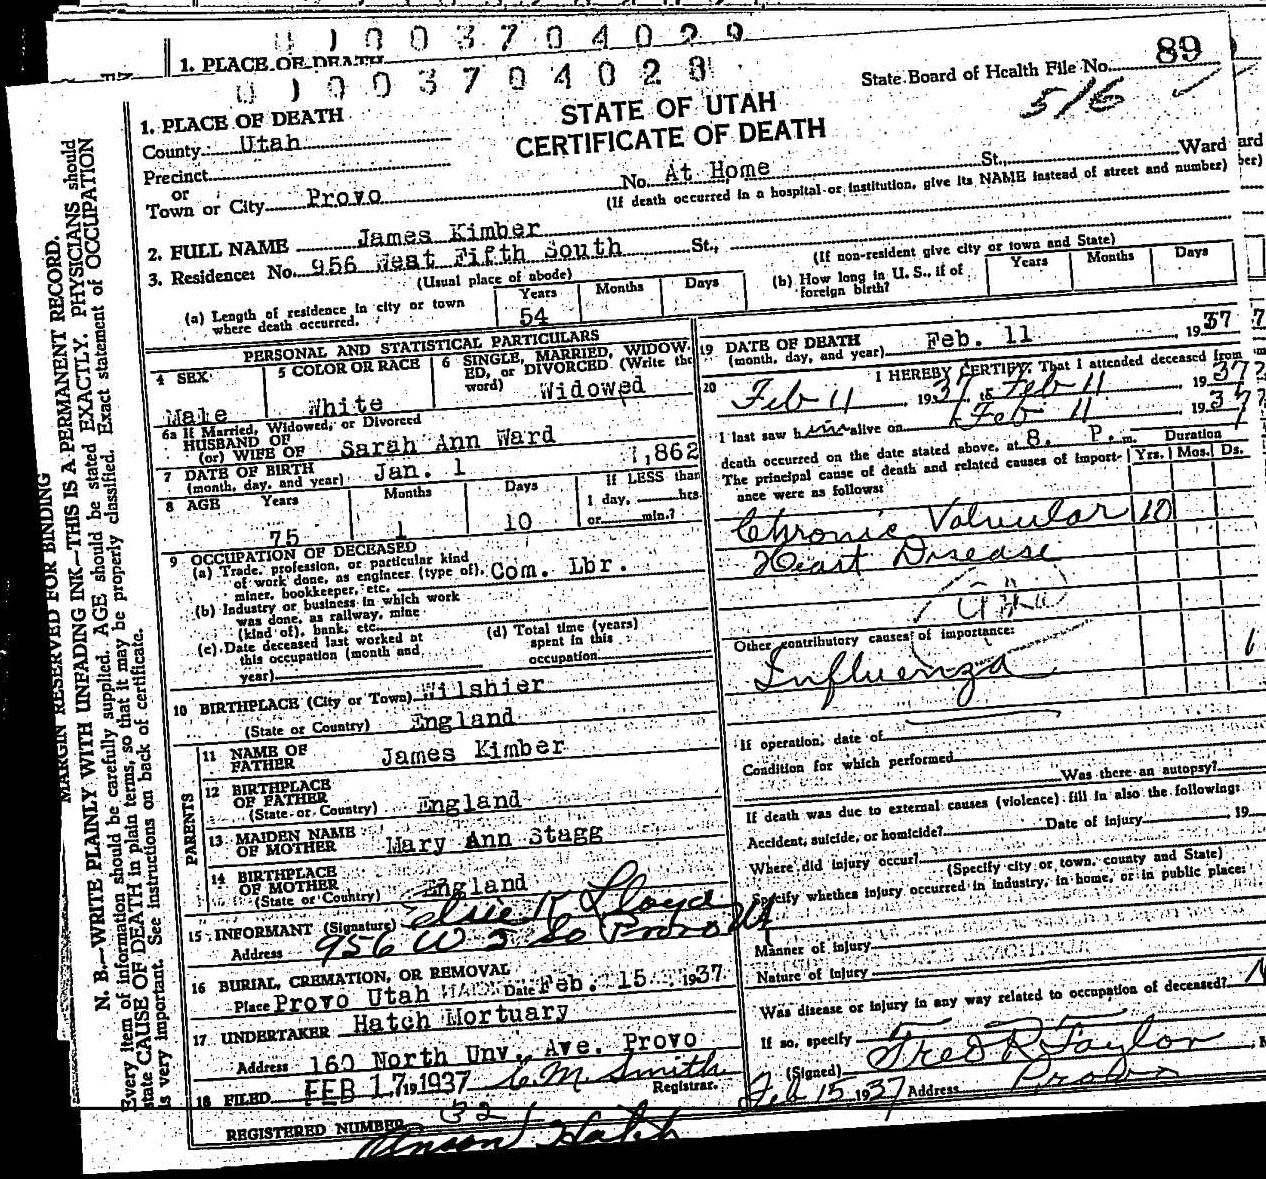 0 1 0 0 3 7 0 4 0 2 9
1. PLACE OF DEATH
0 1 0 0 3 7 0 4 0 2 8
State Board of Health File No. 89
516 ✓
STATE OF UTAH
CERTIFICATE OF DEATH
1. PLACE OF DEATH
County Utah
Precinct
or
Town or City Provo No. At Home St., Ward
(If death occurred in a hospital or institution, give its NAME instead of street and number)
2. FULL NAME James Kimber
3. Residence: No. 956 West Fifth South St.,
(Usual place of abode)
(If non-resident give city or town and State)
(a) Length of residence in city or town where death occurred. Years 54 Months Days
(b) How long in U. S., if of foreign birth? Years Months Days
PERSONAL AND STATISTICAL PARTICULARS
4 SEX Male
5 COLOR OR RACE White
6 SINGLE, MARRIED, WIDOWED, or DIVORCED (Write the word) Widowed
6a If Married, Widowed, or Divorced
HUSBAND OF
(or) WIFE OF Sarah Ann Ward
7 DATE OF BIRTH
(month, day, and year) Jan. 1 1,862
8 AGE Years 75 Months 1 Days 10 If LESS than 1 day, hrs. or min.?
9 OCCUPATION OF DECEASED
(a) Trade, profession, or particular kind of work done, as engineer (type of), miner, bookkeeper, etc. Com. Lbr.
(b) Industry or business in which work was done, as railway, mine (kind of), bank, etc.
(c) Date deceased last worked at this occupation (month and year)
(d) Total time (years) spent in this occupation
10 BIRTHPLACE (City or Town) Wilshier
(State or Country) England
PARENTS
11 NAME OF FATHER James Kimber
12 BIRTHPLACE OF FATHER
(State or Country) England
13 MAIDEN NAME OF MOTHER Mary Ann Stagg
14 BIRTHPLACE OF MOTHER
(State or Country) England
15 INFORMANT (Signature) Elsie K Lloyd
Address 956 W 5 So Provo Ut
16 BURIAL, CREMATION, OR REMOVAL
Place Provo Utah Date Feb. 15 1937
17 UNDERTAKER Hatch Mortuary
Address 160 North Unv. Ave. Provo
18 FILED FEB 17 1937 C. M. Smith
Registrar.
REGISTERED NUMBER 32
Anson Hatch
19 DATE OF DEATH
(month, day, and year) Feb. 11 1937
20 I HEREBY CERTIFY, That I attended deceased from
Feb 11 1937, to Feb 11 1937
I last saw him alive on Feb 11 1937
death occurred on the date stated above, at 8. P. m.
The principal cause of death and related causes of importance were as follows:
Duration
Yrs. Mos. Ds.
Chronic Valvular 10
Heart Disease
Other contributory causes of importance:
Influenza
If operation, date of
Condition for which performed
Was there an autopsy?
If death was due to external causes (violence) fill in also the following:
Accident, suicide, or homicide? Date of injury 19
Where did injury occur?
(Specify city or town, county and State)
Specify whether injury occurred in industry, in home, or in public place:
Manner of injury
Nature of injury
Was disease or injury in any way related to occupation of deceased? N
If so, specify
(Signed) Fred R Taylor
Feb 15 1937 Address Provo
MARGIN RESERVED FOR BINDING
N. B.—WRITE PLAINLY WITH UNFADING INK—THIS IS A PERMANENT RECORD.
Every item of information should be carefully supplied. AGE should be stated EXACTLY. PHYSICIANS should
state CAUSE OF DEATH in plain terms, so that it may be properly classified. Exact statement of OCCUPATION
is very important. See instructions on back of certificate.